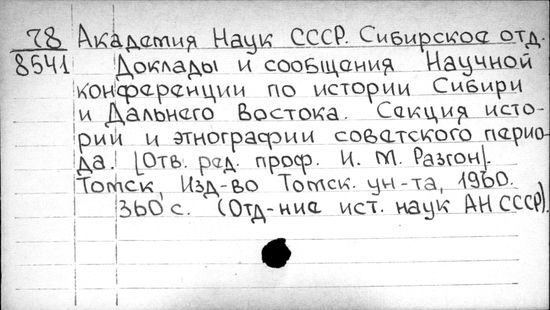 78 Академия Наук СССР. Сибирское отд.
8541 Доклады и сообщения Научной
конференции по истории Сибири
и Дальнего Востока. Секция исто-
рии и этнографии советского перио-
да. [Отв. ред. проф. И. М. Разгон].
Томск, Изд-во Томск. ун-та, 1960.
360 с. (Отд-ние ист. наук АН СССР).